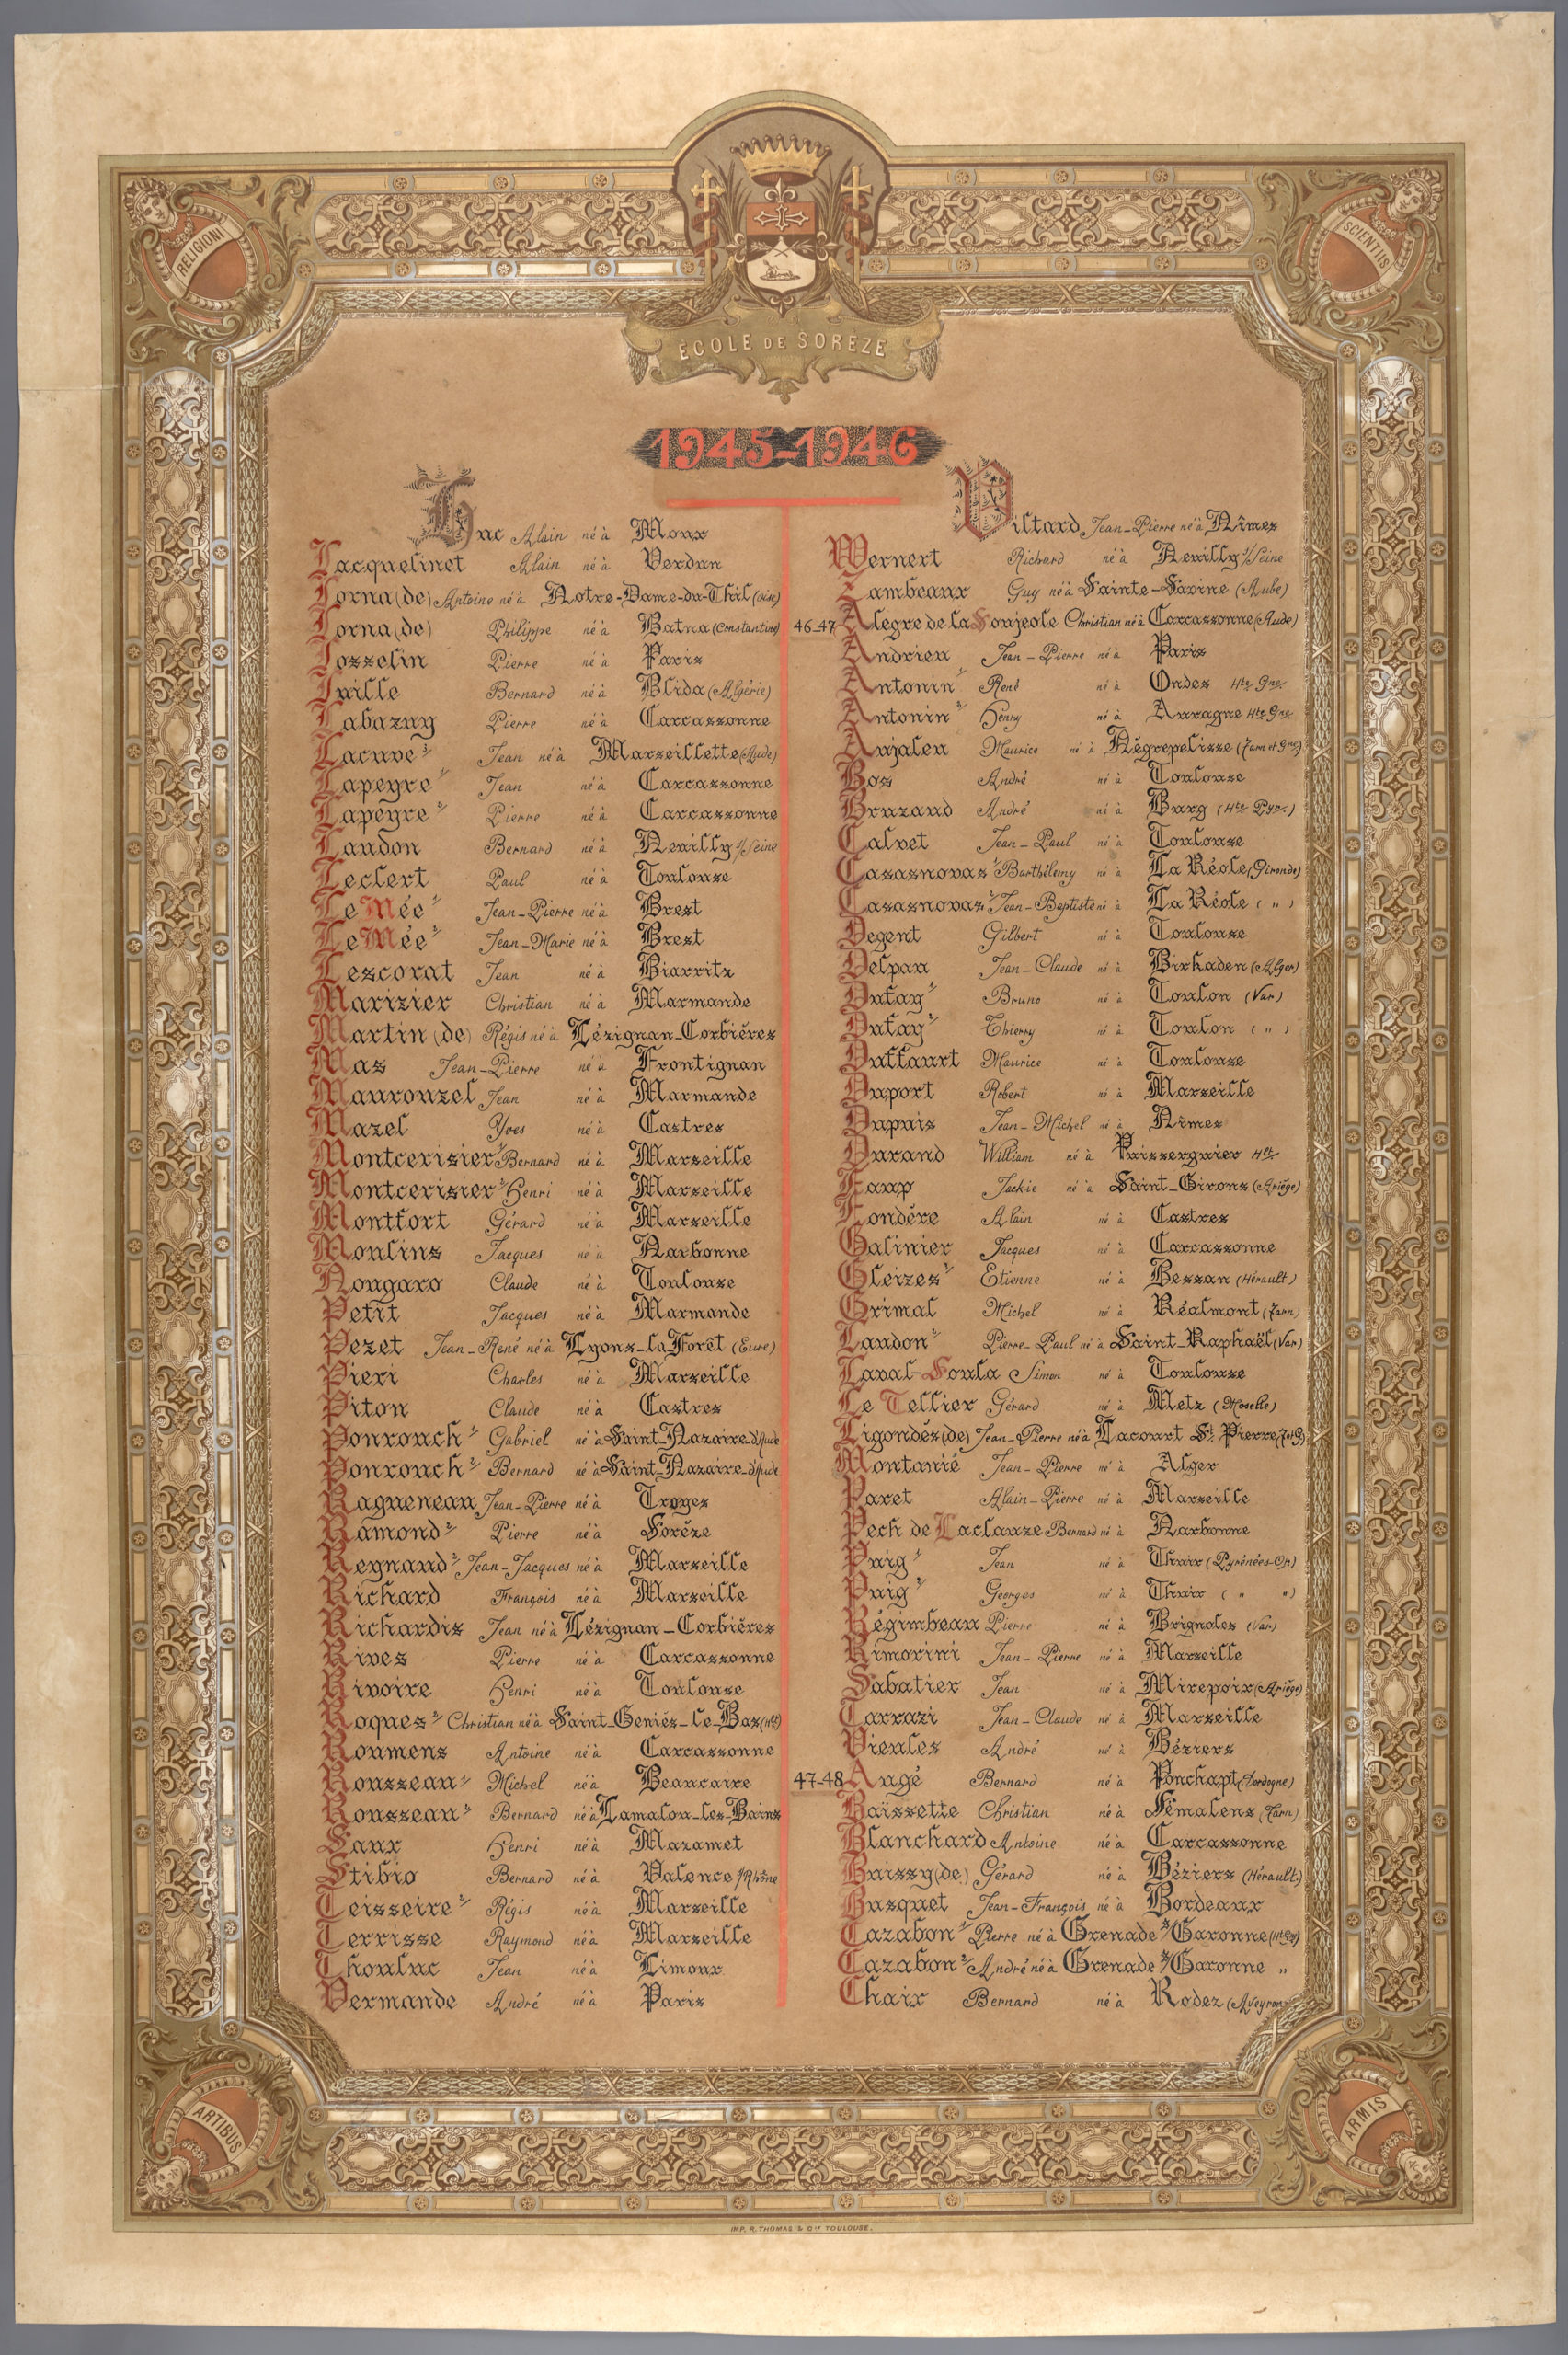 RELIGIONI
SCIENTIIS
ÉCOLE DE SORÈZE
1945-1946
Huc Alain né à Moux
Jacquelinet Alain né à Verdun
Jorna (de) Antoine né à Notre-Dame-du-Thil (oise)
Jorna (de) Philippe né à Batna (Constantine)
Josselin Pierre né à Paris
Juille Bernard né à Blida (Algérie)
Labazuy Pierre né à Carcassonne
Lacuve 3/ Jean né à Marseillette (Aude)
Lapeyre 1/ Jean né à Carcassonne
Lapeyre 2/ Pierre né à Carcassonne
Laudon Bernard né à Neuilly s/Seine
Leclert Paul né à Toulouse
Le Mée 1/ Jean-Pierre né à Brest
Le Mée 2/ Jean-Marie né à Brest
Lescorat Jean né à Biarritz
Marizier Christian né à Marmande
Martin (de) Régis né à Lézignan-Corbières
Mas Jean-Pierre né à Frontignan
Maurouzel Jean né à Marmande
Mazel Yves né à Castres
Montcerisier 1/ Bernard né à Marseille
Montcerisier 2/ Henri né à Marseille
Montfort Gérard né à Marseille
Moulins Jacques né à Narbonne
Nougaro Claude né à Toulouse
Petit Jacques né à Marmande
Pezet Jean-René né à Lyons-la-Forêt (Eure)
Pieri Charles né à Marseille
Piton Claude né à Castres
Ponrouch 1/ Gabriel né à Saint-Nazaire-d'Aude
Ponrouch 2/ Bernard né à Saint-Nazaire-d'Aude
Ragueneau Jean-Pierre né à Troyes
Ramond 2/ Pierre né à Sorèze
Regnaud 2/ Jean-Jacques né à Marseille
Richard François né à Marseille
Richardis Jean né à Lézignan-Corbières
Rives Pierre né à Carcassonne
Rivoire Henri né à Toulouse
Roques 2/ Christian né à Saint-Geniés-le-Bas (Hlt)
Roumens Antoine né à Carcassonne
Rousseau 1/ Michel né à Beaucaire
Rousseau 2/ Bernard né à Lamalou-les-Bains
Saux Henri né à Mazamet
Stibio Bernard né à Valence s/Rhône
Teisseire 2/ Régis né à Marseille
Terrisse Raymond né à Marseille
Thouluc Jean né à Limoux
Vermande André né à Paris
Viltard Jean-Pierre né à Nîmes
Wernert Richard né à Neuilly s/Seine
Zambeaux Guy né à Sainte-Savine (Aube)
46-47 Alegre de la Soujeole Christian né à Carcassonne (Aude)
Andrieu Jean-Pierre né à Paris
Antonin 1/ René né à Ondes Hte Gne
Antonin 2/ Henry né à Auragne Hte Gne
Aujaleu Maurice né à Négrepelisse (Tarn et Gne)
Bos André né à Toulouse
Bruzaud André né à Burg (Htes Pyr.)
Calvet Jean-Paul né à Toulouse
Casasnovas 1/ Barthélemy né à La Réole (Gironde)
Casasnovas 2/ Jean-Baptiste né à La Réole ( " )
Degent Gilbert né à Toulouse
Delpau Jean-Claude né à Birkaden (Alger)
Dufay 1/ Bruno né à Toulon (Var)
Dufay 2/ Thierry né à Toulon ( " )
Duffaurt Maurice né à Toulouse
Duport Robert né à Marseille
Dupuis Jean-Michel né à Nîmes
Durand William né à Puisserguier Hlt
Faup Jackie né à Saint-Girons (Ariège)
Fondère Alain né à Castres
Galinier Jacques né à Carcassonne
Gleizes 2/ Etienne né à Bessan (Hérault)
Grimal Michel né à Réalmont (Tarn)
Laudon 2/ Pierre-Paul né à Saint-Raphaël (Var)
Laval-Soula Simon né à Toulouse
Le Tellier Gérard né à Metz (Moselle)
Ligondés (de) Jean-Pierre né à Lacourt St. Pierre (T et G)
Montanié Jean-Pierre né à Alger
Paret Alain-Pierre né à Marseille
Pech de Laclauze Bernard né à Narbonne
Puig 1/ Jean né à Thuir (Pyrénées-Or)
Puig 2/ Georges né à Thuir ( " " )
Régimbeau Pierre né à Brignoles (Var)
Rimorini Jean-Pierre né à Marseille
Sabatier Jean né à Mirepoix (Ariège)
Tarrazi Jean-Claude né à Marseille
Vieules André né à Béziers
47-48 Augé Bernard né à Ponchapt (Dordogne)
Baïssette Christian né à Sémalens (Tarn)
Blanchard Antoine né à Carcassonne
Buissy (de) Gérard né à Béziers (Hérault)
Busquet Jean-François né à Bordeaux
Cazabon 1/ Pierre né à Grenade s/Garonne (Hte G)
Cazabon 2/ André né à Grenade s/Garonne "
Chaix Bernard né à Rodez (Aveyron)
ARTIBUS
ARMIS
IMP. R. THOMAS & Cie TOULOUSE.